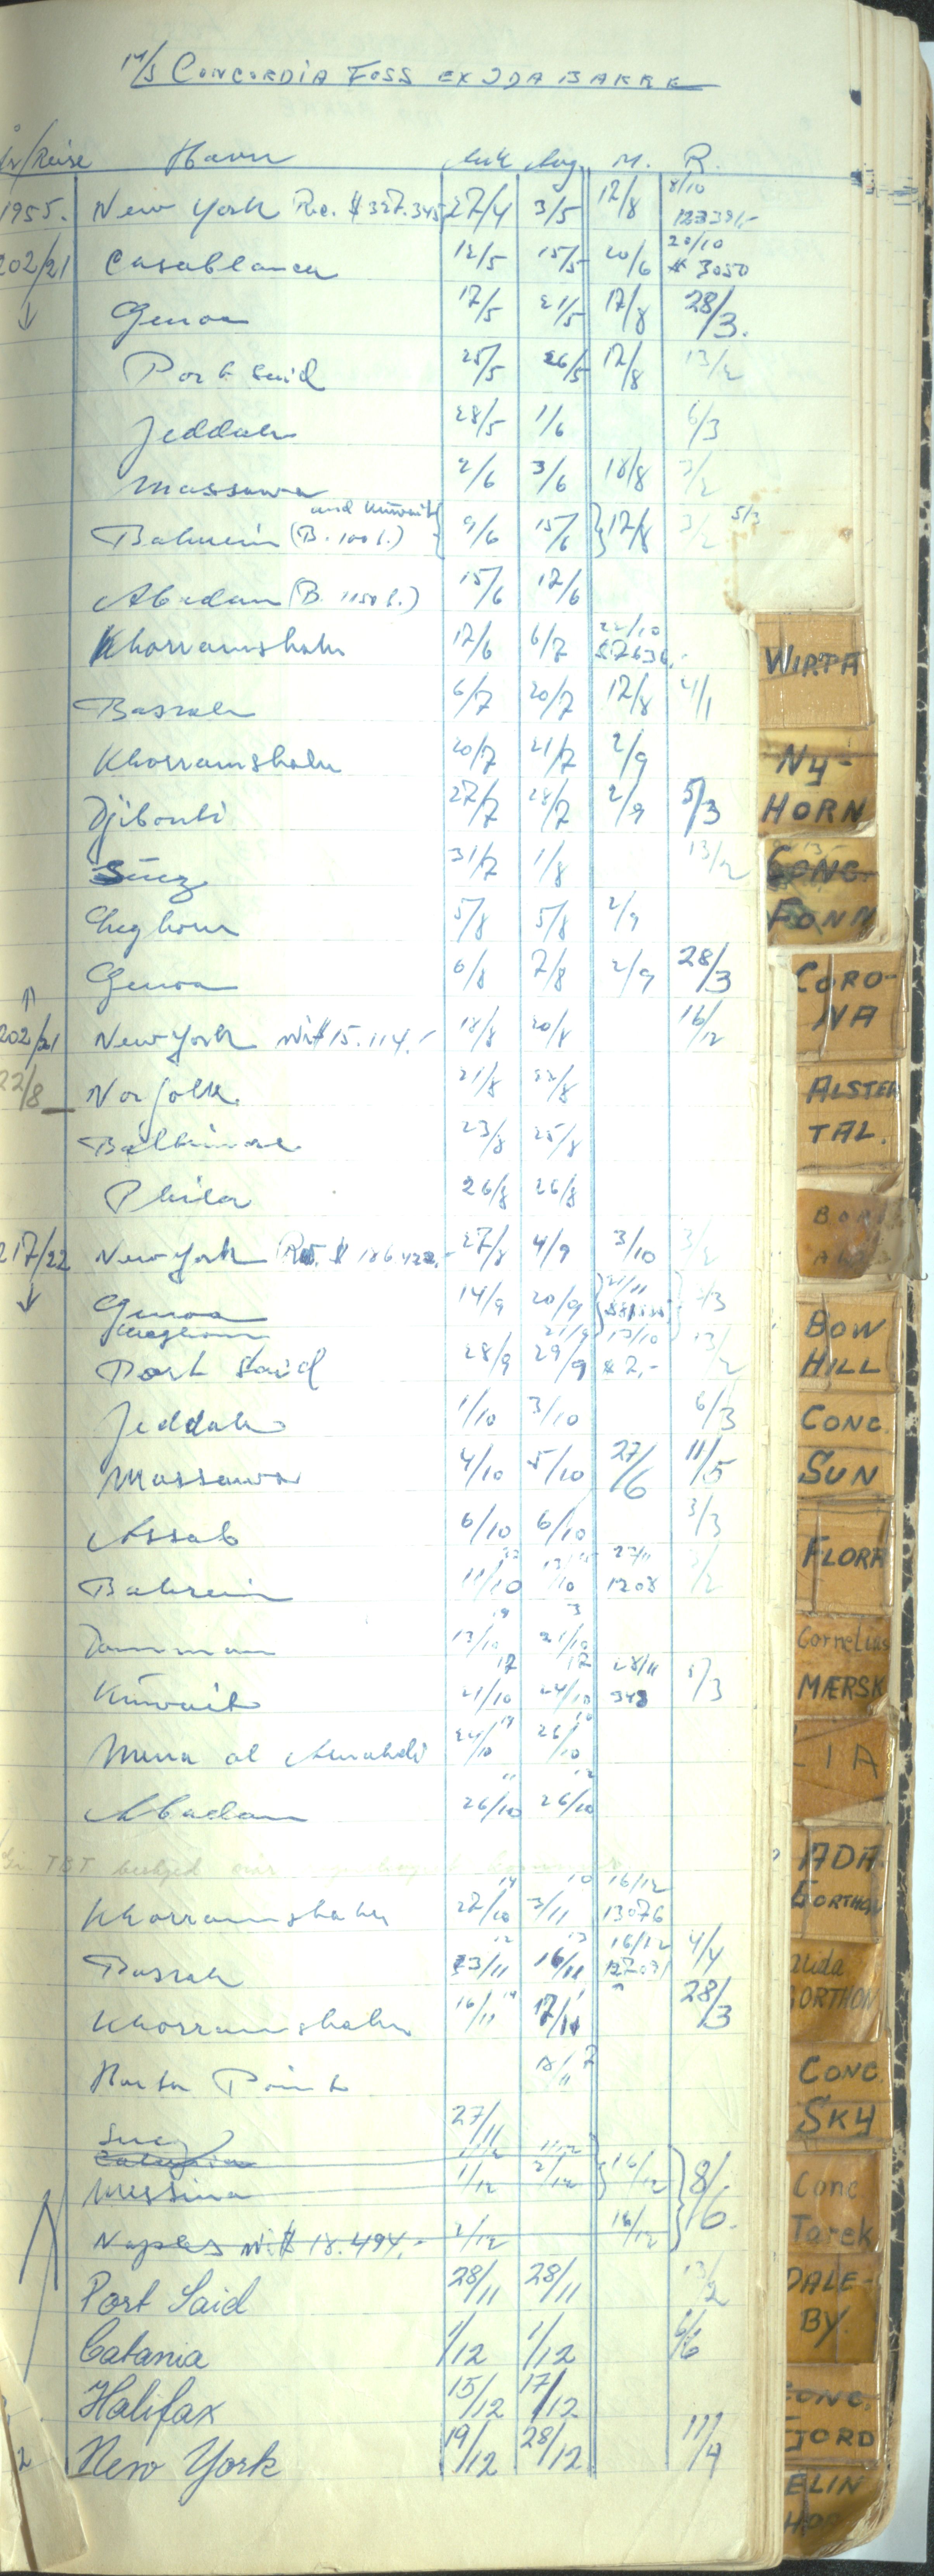 M/S CONCORDIA FOSS EX IDA BAKKE
År/Reise Havn Ank Avg. M. R.
1955. New York Rec. $327.345 27/4 3/5 12/8 8/10
202/21 Casablanca 12/5 15/5 20/6 20/10 $ 3050
↓ Genoa 17/5 21/5 17/8 28/3.
Port Said 25/5 26/5 12/8 13/2
Jeddah 28/5 1/6 6/3
Massawa 2/6 3/6 18/8 3/2
and Kuwait
Bahrein (B. 100 l.) 9/6 15/6 12/8 3/2 5/3
Abadan (B. 1150 l.) 15/6 17/6
Khorramshahr 17/6 6/7 22/10
Basrah 6/7 20/7 12/8 4/1
Khorramshahr 20/7 21/7 2/9
Djibouti 27/7 28/7 2/9 5/3
Suez 31/7 1/8 13/2
Leghorn 5/8 5/8 2/9
Genoa 6/8 7/8 2/9 28/3
↑
202/21 New York Nit $ 15.114.- 18/8 20/8 16/12
22/8 Norfolk 21/8 22/8
Baltimore 23/8 25/8
Phila 26/8 26/8
217/22 New York Rec. $ 186.422.- 27/8 4/9 3/10 3/2
↓ Genoa 14/9 20/9 21/11
Leghorn 21/9 13/10
Port Said 28/9 29/9 $ 2.- 13/2
Jeddah 1/10 3/10 6/3
Massawa 4/10 5/10 27/6 11/5
Assab 6/10 6/10 3/3
Bahrein 11/10 13/10 23/11 1208
Damman 13/10 21/10
Kuwait 21/10 24/10 28/11 343 1/3
Mena al Amahdi 24/10 26/10
Abadan 26/10 26/10
TBT
Khorramshahr 27/10 3/11 16/12 13076
Basrah 3/11 16/11 16/12 4/4
Khorramshahr 16/11 17/11 " 28/3
Harta Point 18/11
Suez 27/11
Catania 1/12 1/12
Messina 1/12 2/12 16/12 8/6.
Naples Nit $ 18.494.- 2/12 16/12
Port Said 28/11 28/11 13/2
Catania 1/12 1/12 6/6
Halifax 15/12 17/12
New York 19/12 28/12 11/4
WIRTA
NY-
HORN
CONC.
FONN
CORO-
NA
ALSTER
TAL.
BOW
HILL
CONC.
SUN
FLORA
Cornelius
MÆRSK
LIA
ADA
GORTHON
Alida
GORTHON
CONC.
SKY
Conc.
Tarek
DALE-
BY.
CONC.
FJORD
ELIN
HOP